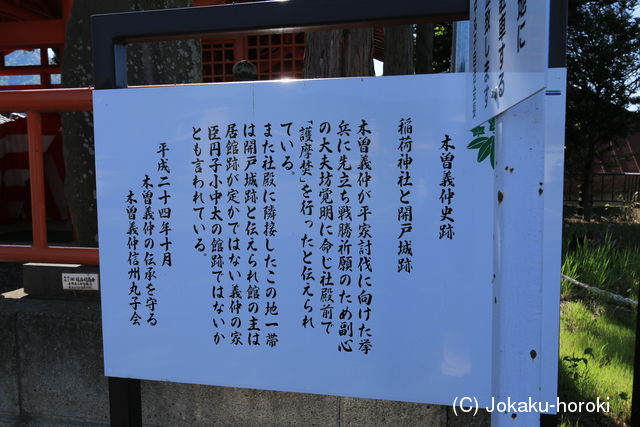 木曽義仲史跡
稲荷神社と開戸城跡
木曽義仲が平家討伐に向けた挙
兵に先立ち戦勝祈願のため副心
の大夫坊覚明に命じ社殿前で
「護摩焚」を行ったと伝えられ
ている。
また社殿に隣接したこの地一帯
は開戸城跡と伝えられ館の主は
居館跡が定かではない義仲の家
臣円子小中太の館跡ではないか
とも言われている。
平成二十四年十月
木曽義仲の伝承を守る
木曽義仲信州丸子会
(C) Jokaku-horoki